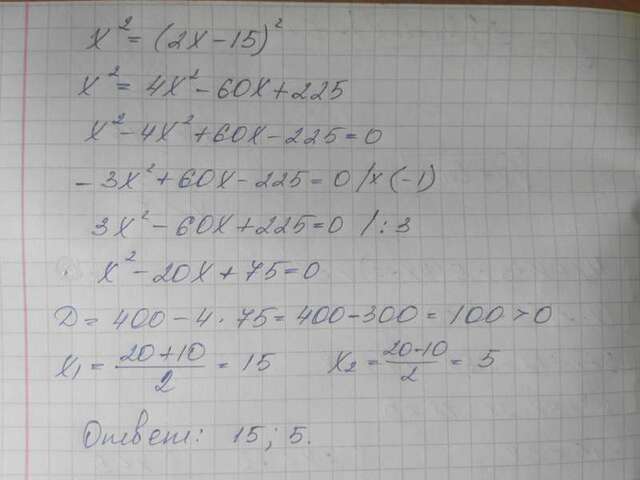 x² = (2x - 15)²
x² = 4x² - 60x + 225
x² - 4x² + 60x - 225 = 0
- 3x² + 60x - 225 = 0 /x (-1)
3x² - 60x + 225 = 0 /: 3
x² - 20x + 75 = 0
D = 400 - 4 · 75 = 400 - 300 = 100 > 0
x₁ = (20 + 10)/2 = 15 x₂ = (20 - 10)/2 = 5
Ответ: 15; 5.